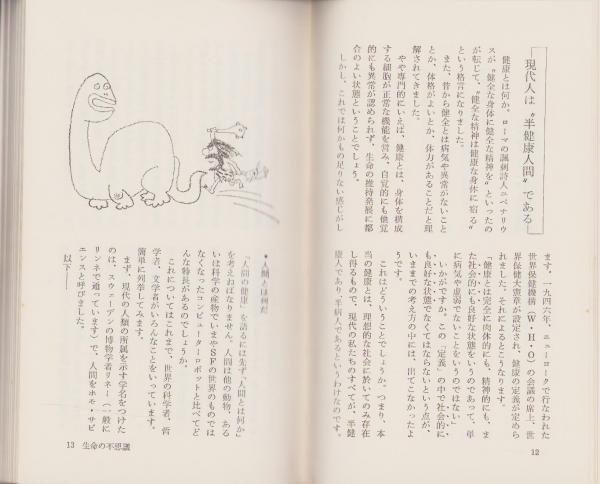 現代人は〝半健康人間〟である
健康とは何か。ローマの諷刺詩人ユベナリウ
スが〝健全な身体に健全な精神を〟といったの
が転じて、〝健全な精神は健康な身体に宿る〟
という格言になりました。
また、昔から健全とは病気や異常がないこと
とか、体格がよいとか、体力があることだと理
解されてきました。
やや専門的にいえば、健康とは、身体を構成
する細胞が正常な機能を営み、自覚的にも他覚
的にも異常が認められず、生命の維持発展に都
合のよい状態ということでしょう。
しかし、これでは何かもの足りない感じがし
ます。一九四六年、ニューヨークで行なわれた
世界保健機構（W・H・O）の会議の席上、世
界保健大憲章が設定され、健康の定義が定めら
れました。それによるとこうなります。
「健康とは完全に肉体的にも、精神的にも、ま
た社会的にも良好な状態をいうのであって、単
に病気や虚弱でないことをいうのではない」
いかがですか。この「定義」の中で社会的に
も良好な状態でなくてはならないという点が、
いままでの考え方の中には、出てこなかったよ
うです。
これはどういうことでしょうか。つまり、本
当の健康とは、理想的な社会に於いてのみ存在
し得るもので、現代の私たちのすべてが、半健
康人であり、半病人であるというわけなのです。
12
●人間とは何だ
「人間の健康」を語るには先ず〝人間とは何か〟
を考えねばなりません。人間は他の動物、ある
いは科学の産物でいまやSFの世界のものでは
なくなったコンピューターロボットと比べてど
んな特長があるのでしょうか。
これについてはこれまで、世界の科学者、哲
学者、文学者がいろんなことをいっています。
簡単に列挙してみます。
まず、現代の人類の所属を示す学名をつけた
のは、スウェーデンの博物学者リネー（一般に
リンネで通っています）で、人間をホモ・サピ
エンスと呼びました。
以下――
13 生命の不思議